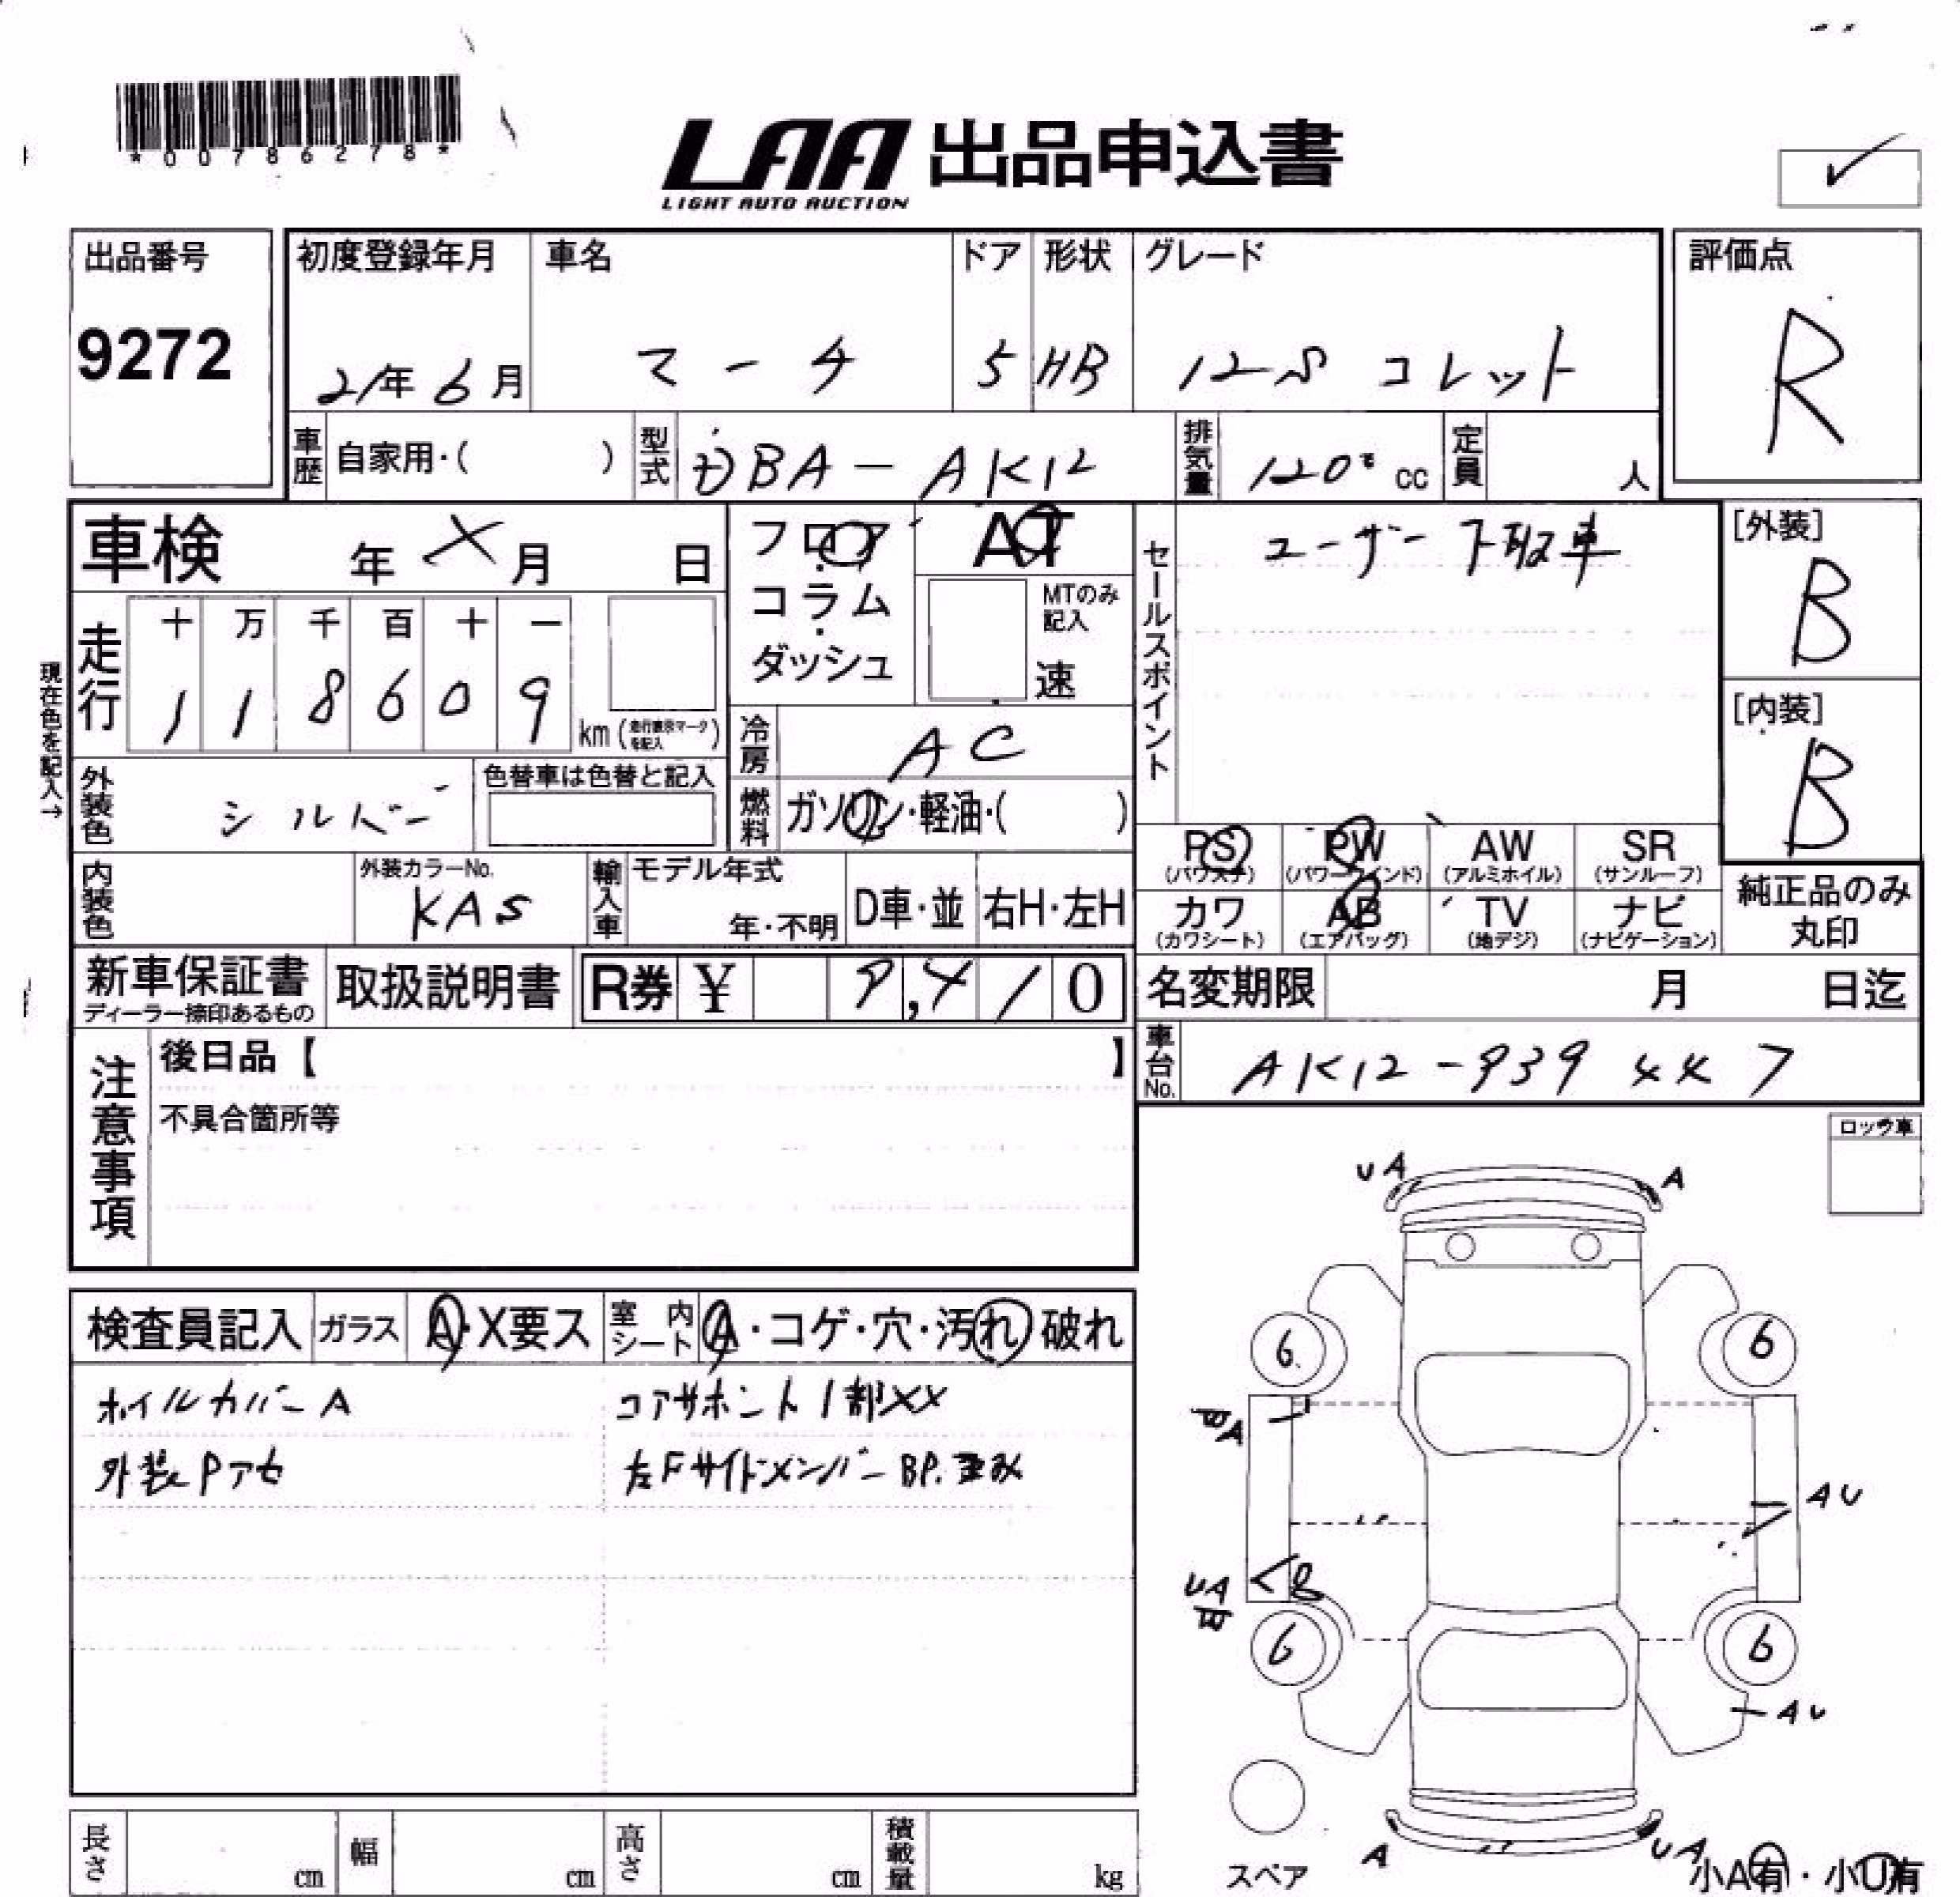 *00786278*
LAA 出品申込書
LIGHT AUTO AUCTION
✓
出品番号
9272
初度登録年月
21年6月
車名
マーチ
ドア
5
形状
HB
グレード
12S コレット
評価点
R
車歴 自家用・( )
型式 DBA-AK12
排気量 120 cc
定員 人
車検 年 X 月 日
フロア・コラム・ダッシュ
AT
MTのみ記入
速
セールスポイント
ユーザー下取車
[外装]
B
[内装]
B
現在色を記入→
走行
十 万 千 百 十 一
1 1 8 6 0 9
km(走行表示マークを記入)
冷房 AC
外装色 シルバー
色替車は色替と記入
燃料 ガソリン・軽油・( )
PS
(パワステ)
PW
(パワーウインド)
AW
(アルミホイル)
SR
(サンルーフ)
カワ
(カワシート)
AB
(エアバッグ)
TV
(地デジ)
ナビ
(ナビゲーション)
純正品のみ
丸印
内装色
外装カラーNo.
KAS
輸入車
モデル年式
年・不明
D車・並
右H・左H
新車保証書
ディーラー捺印あるもの
取扱説明書
R券 ¥ 9,410
名変期限 月 日迄
車台No. AK12-939447
注意事項
後日品【 】
不具合箇所等
ロック車
検査員記入
ガラス A・X要ス
室内シート A・コゲ・穴・汚れ・破れ
ホイルカバーA
コアサポート1部XX
外装Pアセ
左Fサイドメンバー BP. 歪み
UA
A
6
6
A
AU
UA
B
6
6
AU
A
UA
スペア
小A有・小U有
長さ cm
幅 cm
高さ cm
積載量 kg